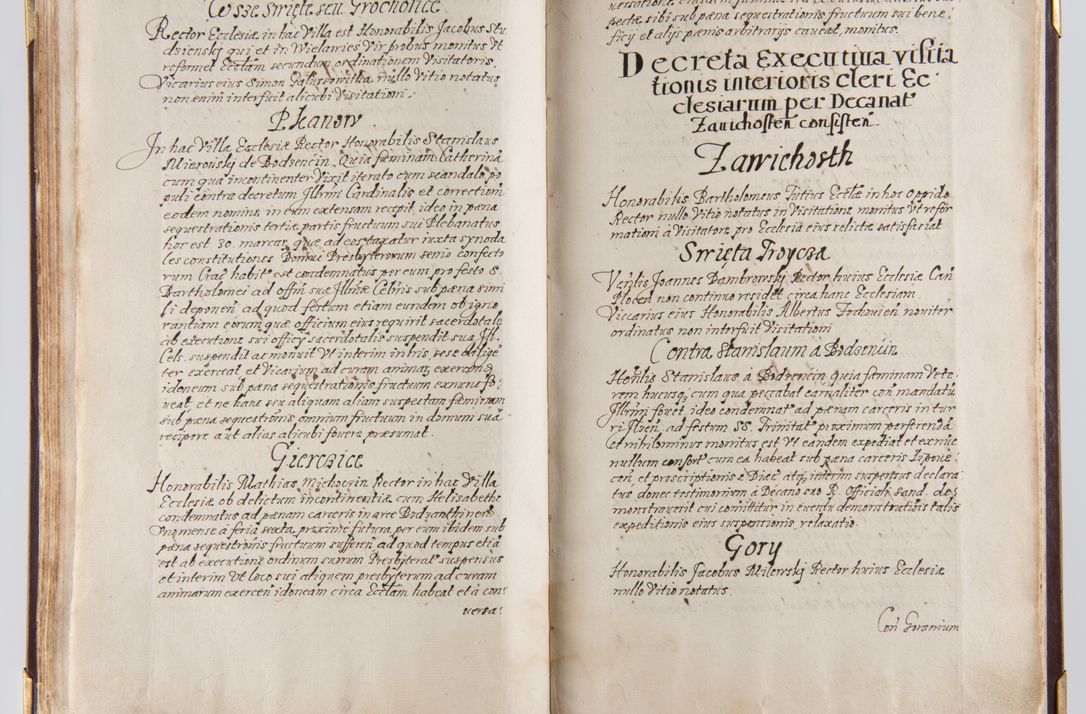 Wsze Swięte seu Grocholice
Rector Ecclesiæ in hac Villa est Honorabilis Jacobus Stu
dsienskj qui et in Wielawies Vir probus monitus Vt
reformet Ecctam secundum ordinationem Visitatoris,
Vicarius eius Simon nullo Vitio notatus
non enim interfuit alicubi Visitationi.
Pkanow
In hac Villa Ecclesiæ Rector Honorabilis Stanislaus
Mierowskj de Bodzencin Quia fæminam Catherina
cum qua incontinenter Vixit iterato cum scandalo po
puli contra decretum Illrmi Cardinalis et correctioni
eodem nomine in eum extensam recepit, ideo in pæna
sequestrationis tertiæ partis fructuum sui Plebanatus
hoc est 30. marcar quæ ad eos taxatur iuxta synoda
les constitutiones Domui Presbyterorum senio confecto
rum Crac habit est condemnatus per eum pro festo S.
Bartholomei ad offm suæ Illrmæ Celtnis sub pæna simi
li deponen ad quod festum etiam eundem ob igno
rantiam eorum quæ officium eius requirit sacerdotale
ab executione sui officij sacerdotalis suspendit sua Ill.
Cels. suspendit ac monuit Vt interim in his, sese dilige
ter exerceat et Vicarium ad curam animar exercen
idoneum sub pæna sequestrationis fructuum exnunc fo
ueat, et ne hanc seu aliquam aliam suspectam fæminam
sub pæna sequestronis omnium fructuum in domum suã
recipere aut alias alicubi fouere præsumat.
Gierczice
Honorabilis Mathias Michocin Rector in hac Villa
Ecclesiæ ob delictum incontinentiæ cum Helisabethe
condemnatus ad pænam carceris in arce Bodzanthinens
Vnomense à feria sexta proxime futura per eum ibidem sub
pæna sequestronis fructuum sufferen ad quod tempus etiã
est ab executione ordinum suorum Presbyterat suspensus
et interim Vt loco sui aliquem presbyterum ad curam
animarum exercen idoneam circa Ecctam habeat et à con
uersa:
pectæ sibi sub pæna sequestrationis fructuum sui bene
ficij et alijs pænis arbitrarijs caueat, monitus.
Decreta Executiua visita
tionis interioris cleri Ec
clesiarum per Decanat
Zauichosten consisten
Zawichosth
Honorabilis Bartholomeus Tutius Ecctæ in hoc Oppido
Rector nullo Vitio notatus in Visitatione monitus Vt refor
mationi à Visitatore pro Ecclesia eius relictæ satisfaciat
Swięta Troycza
Venlis Joannes Dambrowskj Rector huius Ecclesiæ Can
Plocen non continuo residet circa hanc Ecclesiam.
Viccarius eius Honorabilis Albertus nouiter
ordinatus non interfuit Visitationi
Contra Stanislaum à Bodzencin
Honlis Stanislaus à Bodzencin, quia fæminam Vete
rem hucusq, cum qua peccabat carnaliter con mandatũ
Illrmi fouet, ideo condemnat ad pænam carceris in tur
ri Ilzen. ad festum SS. Trinitat proximum perferendã
Et nihilominus monitus est, Vt eandem expediat et exnũc
nullum consort cum ea habeat sub pæna carceris
can, et proscriptionis è Diæc. atq, interim suspensus declara
tus, donec testimonium à Decano seo R. Officiali sand. de,
monstrauerit cui comittitur in euentu demonstrationis talis
expeditionis eius suspensionis, relaxatio.
Gory
Honorabilis Jacobus Milewskj Rector huius Ecclesiæ
nullo Vitio notatus.
Con Goranium